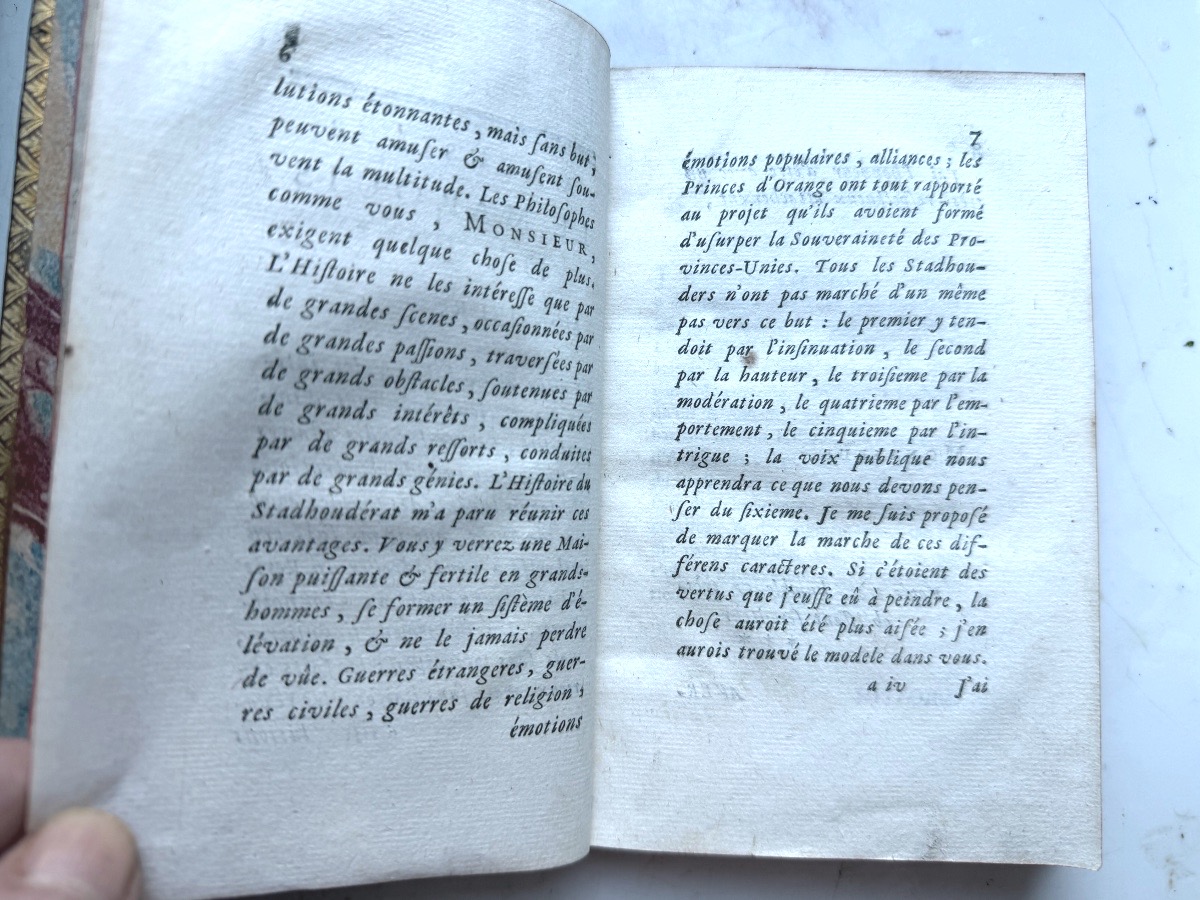 6
lutions étonnantes, mais ſans but,
peuvent amuſer & amuſent ſou-
vent la multitude. Les Philoſophes
comme vous, MONSIEUR,
exigent quelque choſe de plus.
L'Hiſtoire ne les intéreſſe que par
de grandes ſcenes, occaſionnées par
de grandes paſſions, traverſées par
de grands obſtacles, ſoutenues par
de grands intérêts, compliquées
par de grands reſſorts, conduites
par de grands génies. L'Hiſtoire du
Stadhoudérat m'a paru réunir ces
avantages. Vous y verrez une Mai-
ſon puiſſante & fertile en grands-
hommes, ſe former un ſiſtème d'é-
lévation, & ne le jamais perdre
de vûe. Guerres étrangeres, guer-
res civiles, guerres de religion,
émotions
7
émotions populaires, alliances; les
Princes d'Orange ont tout rapporté
au projet qu'ils avoient formé
d'uſurper la Souveraineté des Pro-
vinces-Unies. Tous les Stadhou-
ders n'ont pas marché d'un même
pas vers ce but : le premier y ten-
doit par l'inſinuation, le ſecond
par la hauteur, le troiſieme par la
modération, le quatrieme par l'em-
portement, le cinquieme par l'in-
trigue; la voix publique nous
apprendra ce que nous devons pen-
ſer du ſixieme. Je me ſuis propoſé
de marquer la marche de ces dif-
férens caracteres. Si c'étoient des
vertus que j'euſſe eû à peindre, la
choſe auroit été plus aiſée; j'en
aurois trouvé le modele dans vous.
a iv J'ai